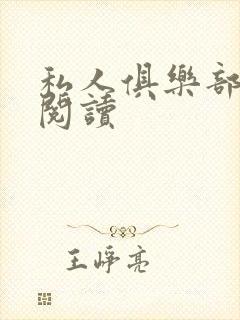 私人俱樂部
閱讀
王崢亮